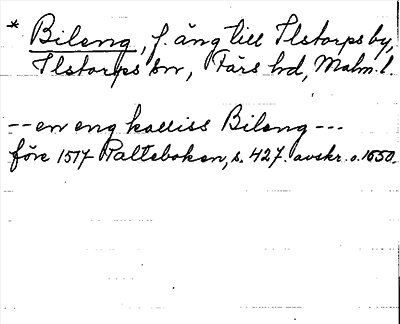 * Bileng, f. äng till Ilstorps by,
Ilstorps sn, Färs hd, Malm. l.
-- en eng kalliss Bileng ---
före 1517 Palteboken, s. 427. avskr. o. 1650.